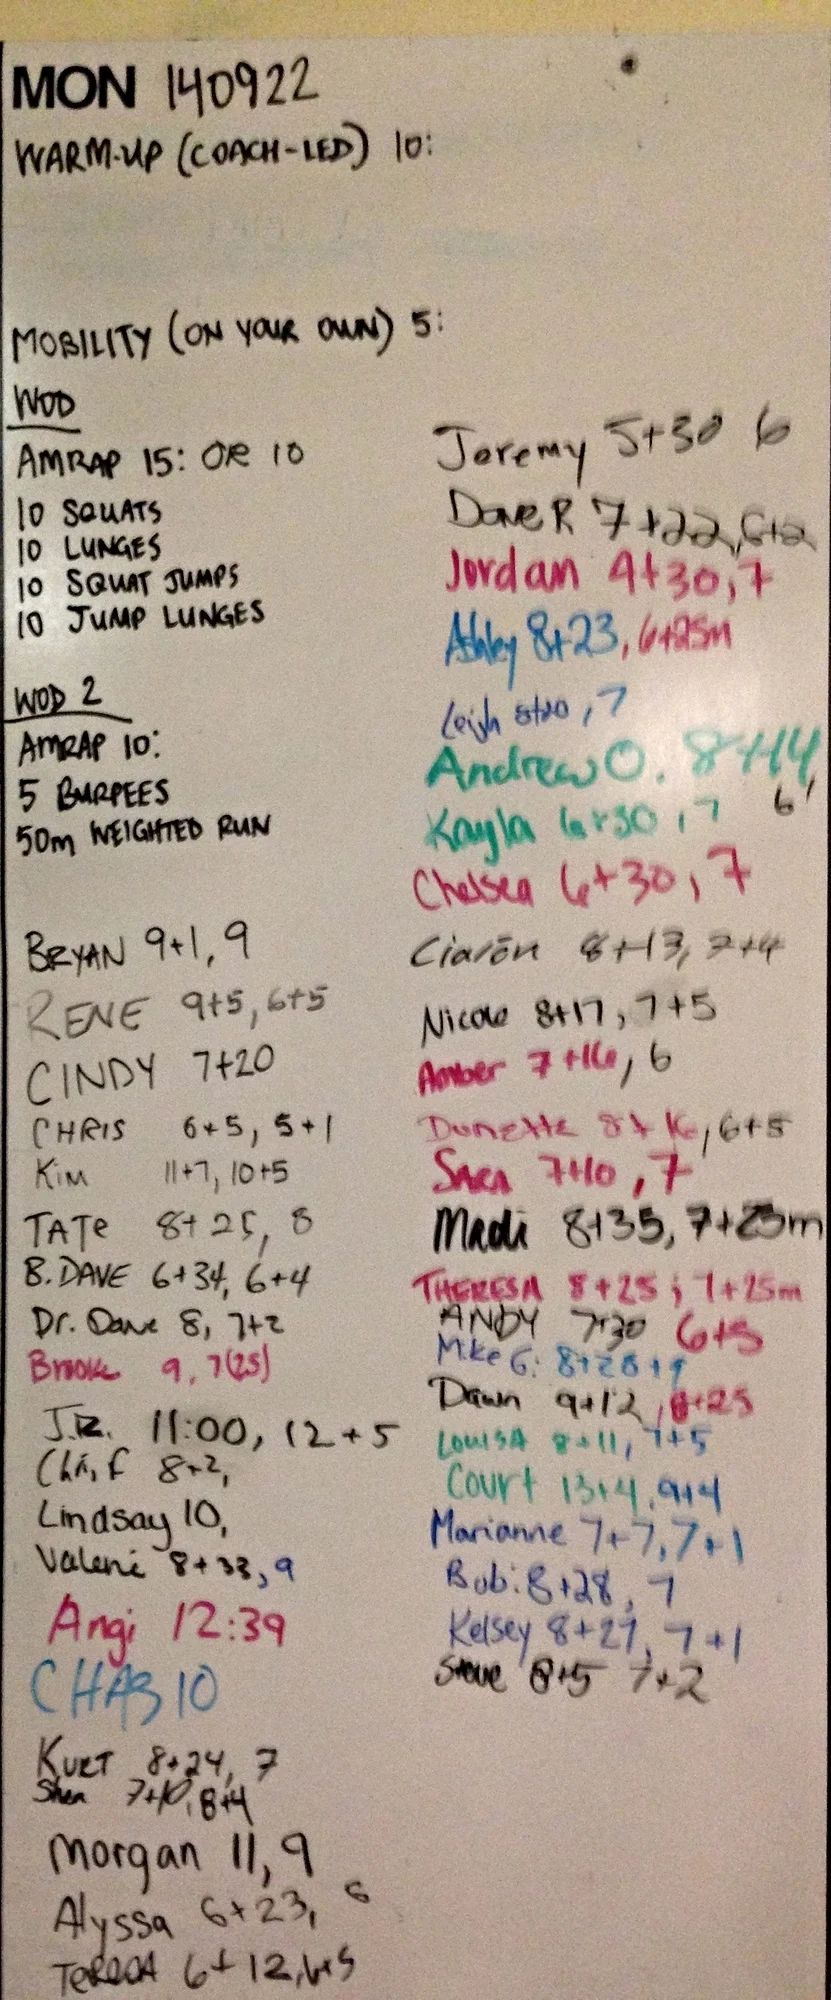 MON 140922
WARM-UP (COACH-LED) 10:
MOBILITY (ON YOUR OWN) 5:
WOD
AMRAP 15: OR 10
10 SQUATS
10 LUNGES
10 SQUAT JUMPS
10 JUMP LUNGES
WOD 2
AMRAP 10:
5 BURPEES
50m WEIGHTED RUN
BRYAN 9+1, 9
RENE 9+5, 6+5
CINDY 7+20
CHRIS 6+5, 5+1
KIM 11+7, 10+5
TATE 8+25, 8
B. DAVE 6+34, 6+4
Dr. Dave 8, 7+2
Brooke 9, 7(25)
J.R. 11:00, 12+5
8+2,
Lindsay 10,
Valerie 8+33, 9
Angi 12:39
CHAB 10
KURT 8+24, 7
Shea 7+10, 8+4
Morgan 11, 9
Alyssa 6+23, 6
6+12, 6+5
Jeremy 5+30 6
Dave R 7+22, 6+2
Jordan 9+30, 7
Ashley 8+23, 6+25m
Leigh 8+20, 7
Andrew O. 8+14, 6
Kayla 6+30, 7
Chelsea 6+30, 7
Ciarón 8+13, 7+4
Nicole 8+17, 7+5
Amber 7+16, 6
8+16, 6+5
7+10, 7
Madi 8+35, 7+25m
THERESA 8+25; 7+25m
ANDY 7+30 6+5
Mike G: 8+28+9
Dawn 9+12, 8+25
LOUISA 8+11, 7+5
Court 13+4, 9+4
Marianne 7+7, 7+1
Bob: 8+28, 7
Kelsey 8+27, 7+1
Steve 8+5 7+2